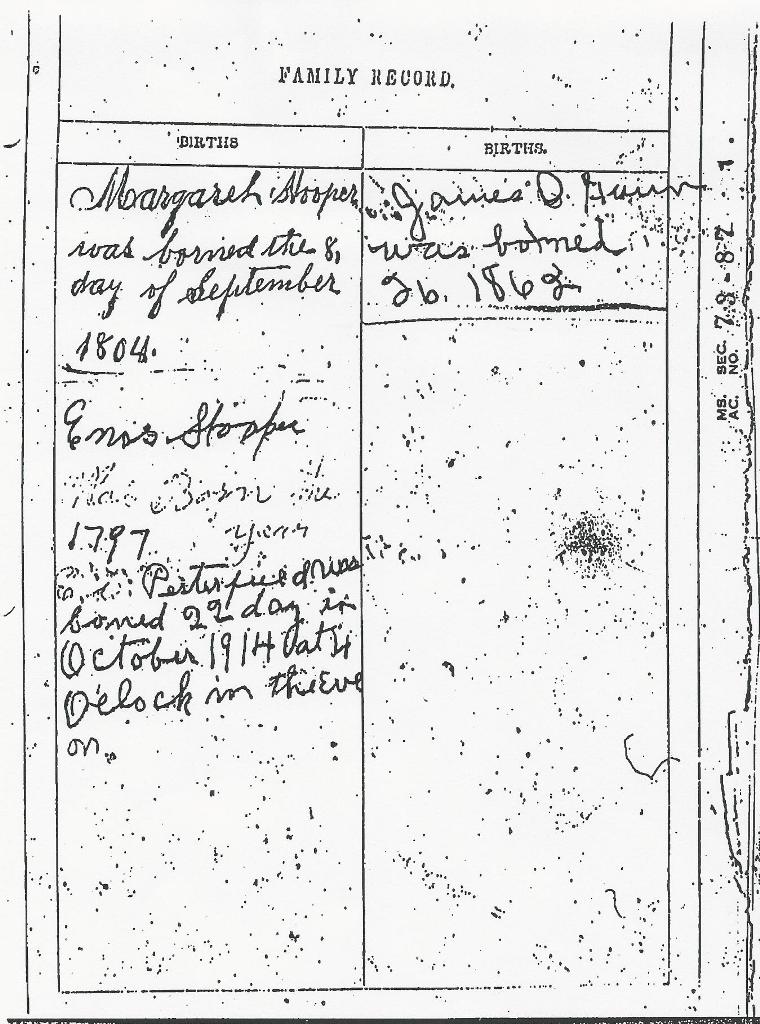 FAMILY RECORD.
BIRTHS
Margaret Hooper
was borned the 8,
day of September
1804.
Enos Hooper
Was Born the
1797 year
Porterfield was
borned 22 day in
October 1914 at 4
O'clock in the Eve
on.
BIRTHS.
James D. Gunn
was borned
26. 1862
MS. SEC.
AC. NO. 78-87